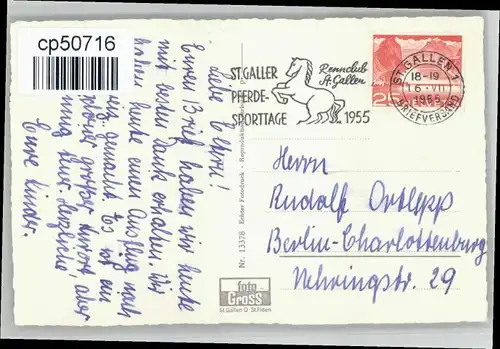 cp50716
Liebe Eltern!
Euren Brief haben wir heute
mit vielen Dank erhalten. Wir
haben heute einen Ausflug nach
gemacht. Es ist ein
großer Kurort, aber
nur herzliche
Eure Kinder.
Nr. 13378 Echter Fotodruck - Reproduktion
foto
GROSS
St. Gallen O St. Fiden
ST. GALLER
PFERDE-
SPORTTAGE
Rennclub
St. Gallen
1955
ST. GALLEN 1
18-19
16. VII
1955
BRIEFVERSAND
Herrn
Rudolf Ortlepp
Berlin-Charlottenburg
Nehringstr. 29